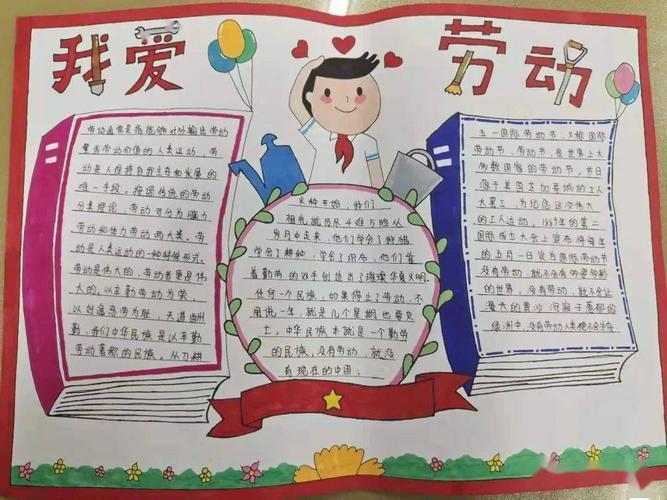 我爱
劳动
劳动通常是指能够对外输出劳动
量或劳动价值的人类运动，劳
动是人维持自我生存和发展的
唯一手段。按照传统的劳动
分类理论，劳动可分为脑力
劳动和体力劳动两大类。劳
动是人类运动的一种特殊形式。
劳动是伟大的，劳动者更是伟
大的。以辛勤劳动为荣，
以好逸恶劳为耻，天道酬
勤，我们中华民族是以辛勤
劳动著称的民族。从刀耕
火种开始，我们
祖先就历尽艰险从
岁月中走来，他们学会了狩猎
学会了耕种，学会了织布，他们靠
着勤劳的双手创造出了璀璨华夏文明。
任何一个民族，如果停止了劳动，不
用说一年，就是几个星期也要灭
亡。中华民族本就是一个勤劳
的民族，没有劳动，就没
有现在的中国；
五一国际劳动节，又称国际
劳动节，劳动节，是世界上大
多数国家的劳动节。节日
源于美国芝加哥城的工人
大罢工，为纪念这次伟大
的工人运动，1889年的第二
国际成立大会上宣布将每年
的五月一日定为国际劳动节
没有劳动，就不会有多姿多彩
的世界，没有劳动，就不会让
漫大的黄沙
绿洲中，没有劳动人类便不会